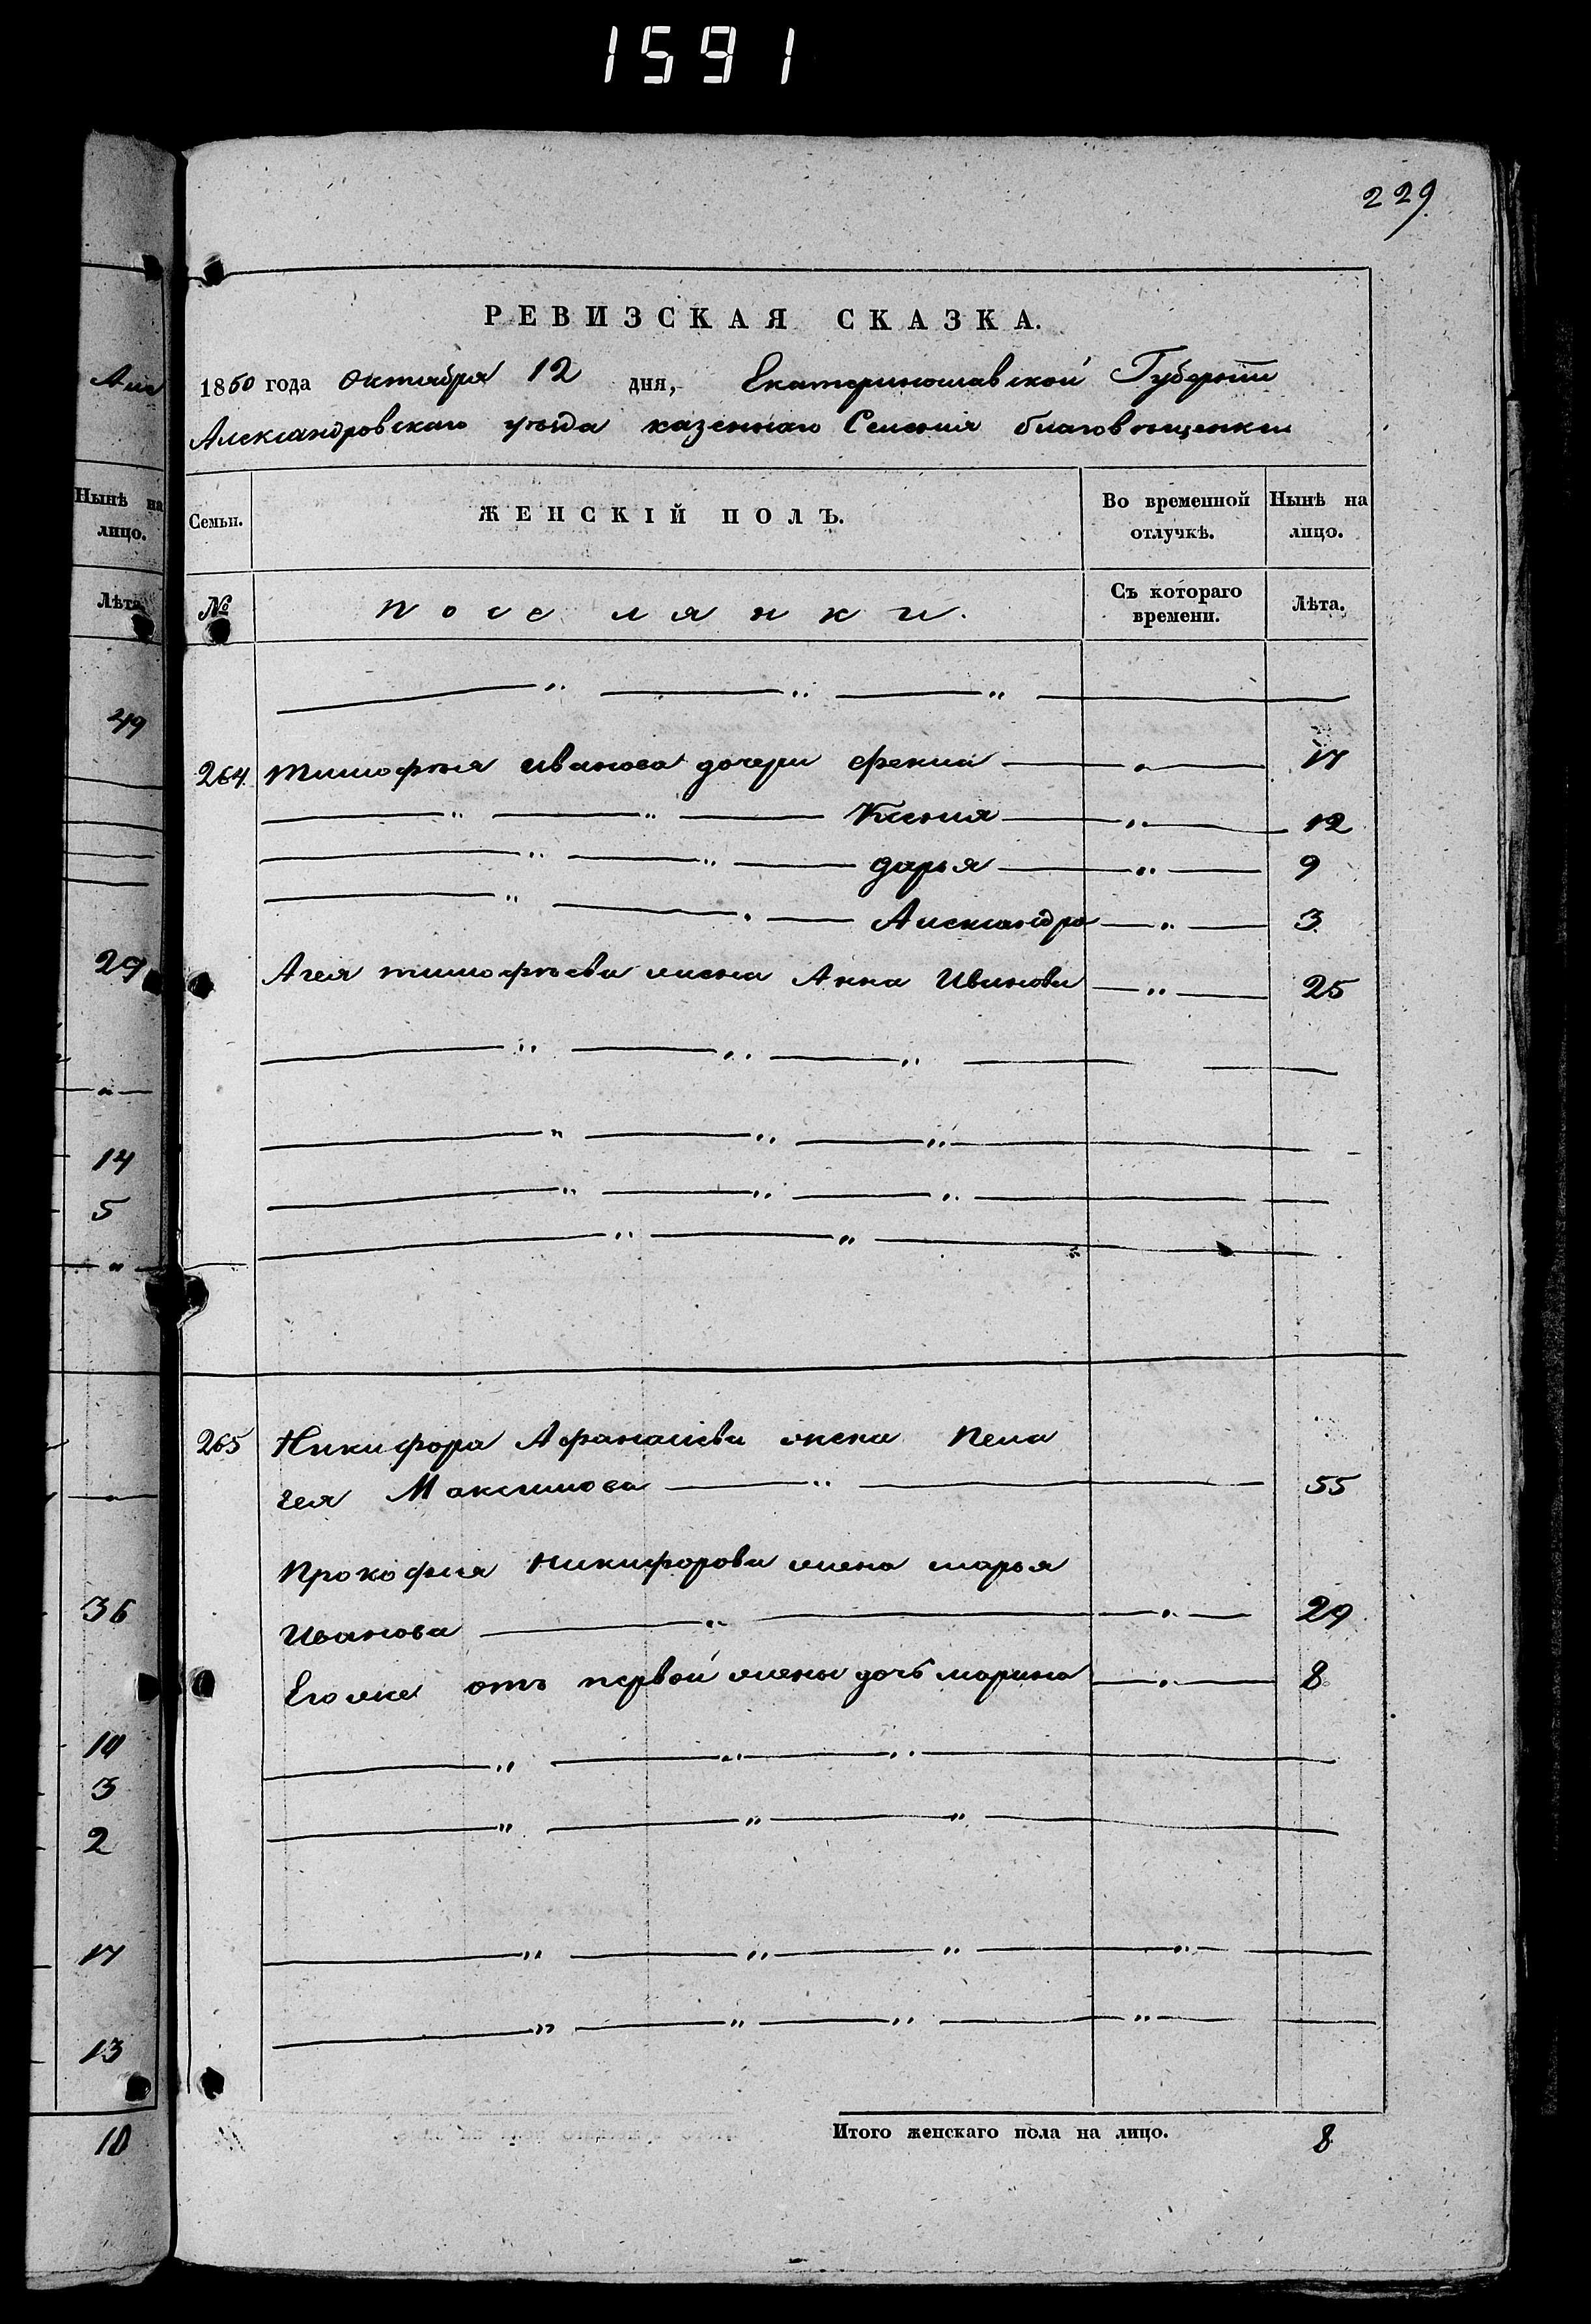 1591
229
РЕВИЗСКАЯ СКАЗКА.
1850 года Октября 12 дня, Екатеринославской Губерніи
Александровскаго уѣзда казеннаго Селенія благовѣщенки
Нынѣ на лицо.
Лѣта
49
29
14
5
36
10
3
2
17
13
10
Семьи.
ЖЕНСКІЙ ПОЛЪ.
Во временной отлучкѣ.
Нынѣ на лицо.
№
поселянки.
Съ котораго времени.
Лѣта.
264 тимофѣя иванова дочери фекла 17
Ксенія 12
дарья 9
Александра 3
Агея тимофѣева жена Анна Иванова 25
265 Никифора Афанасіева жена Пела
гея Максимова 55
Прокофія Никифорова жена марья
Иванова 29
Его же отъ первой жены дочь марина 8
Итого женскаго пола на лицо. 8